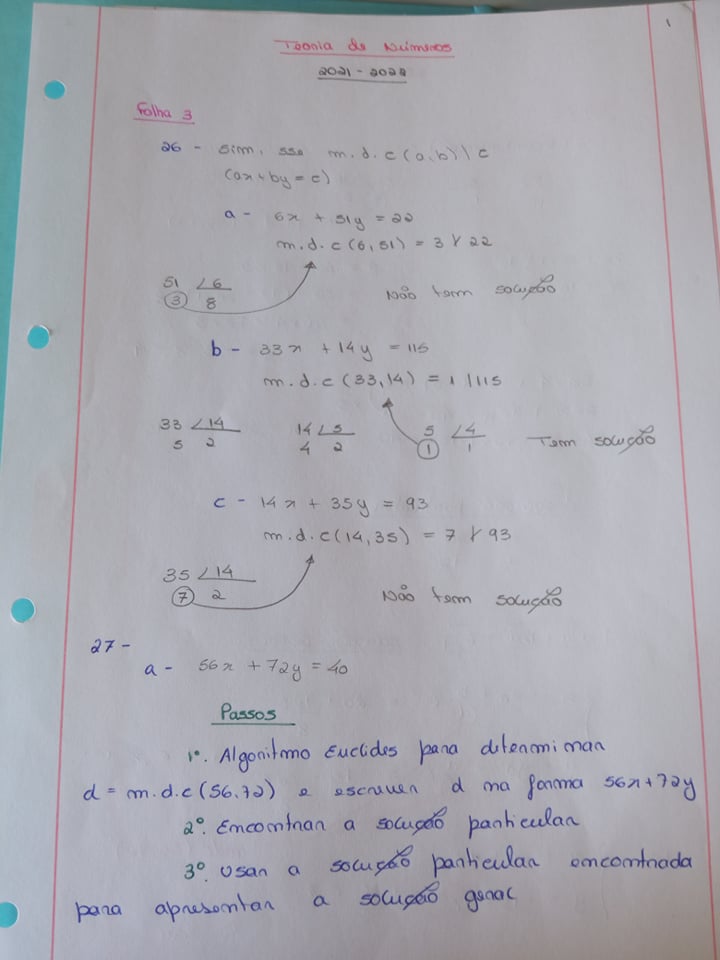 1
Teoria de Números
2021 - 2022
Folha 3
26 - Sim, sse m.d.c(a,b) | c
(ax + by = c)
a - 6x + 51y = 22
m.d.c(6,51) = 3 ∤ 22
51 6
3 8
Não tem solução
b - 33x + 14y = 115
m.d.c(33,14) = 1 | 115
33 14 14 5 5 4
5 2 4 2 1 1
Tem solução
c - 14x + 35y = 93
m.d.c(14,35) = 7 ∤ 93
35 14
7 2
Não tem solução
27 -
a - 56x + 72y = 40
Passos
1º. Algoritmo Euclides para determinar
d = m.d.c(56.72) e escrever d na forma 56x+72y
2º. Encontrar a solução particular
3º. Usar a solução particular encontrada
para apresentar a solução geral